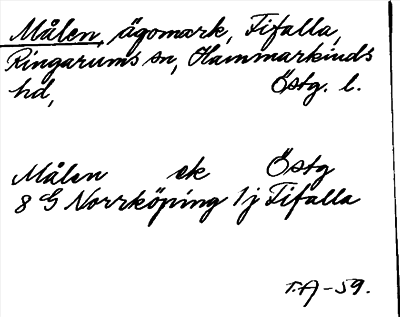 Målen, ägomark, Fifalla,
Ringarums sn, Hammarkinds
hd, Östg. l.
Målen ek Östg
8 G Norrköping 1j Fifalla
T.A-59.